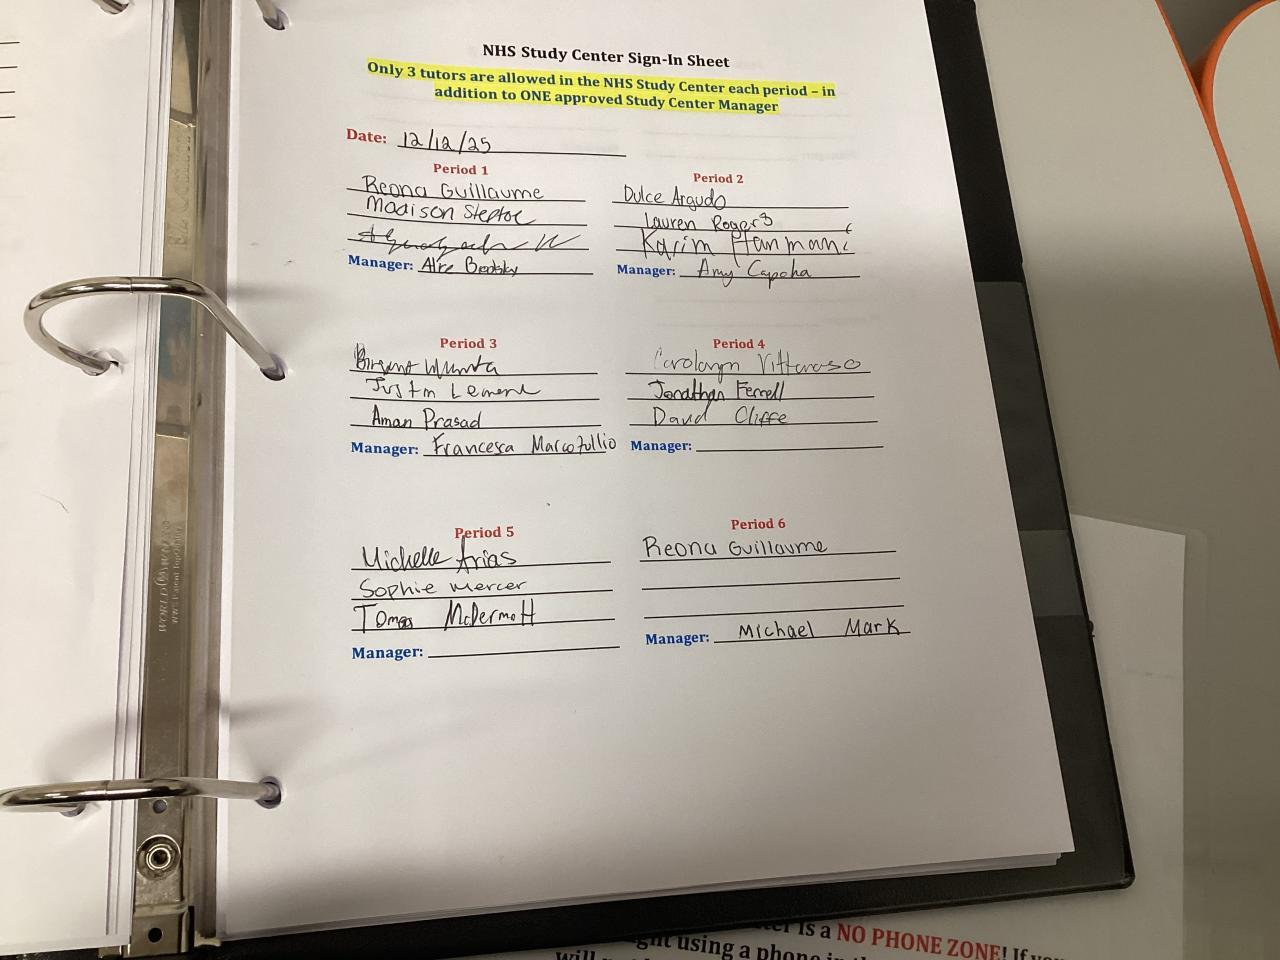 NHS Study Center Sign-In Sheet
Only 3 tutors are allowed in the NHS Study Center each period – in
addition to ONE approved Study Center Manager
Date: 12/12/25
Period 1
Reona Guillaume
Madison Steptoe
Manager: Brodsky
Period 2
Dulce Argudo
Lauren Rogers
Karim
Manager: Amy
Period 3
Justin
Aman Prasad
Manager: Francesca Marcotullio
Period 4
Carolaryn
Jonathan Ferrell
David Cliffe
Manager:
Period 5
Michelle Arias
Sophie Mercer
McDermott
Manager:
Period 6
Reona Guillaume
Manager: Michael Mark
is a NO PHONE ZONE! If
using a phone in
will